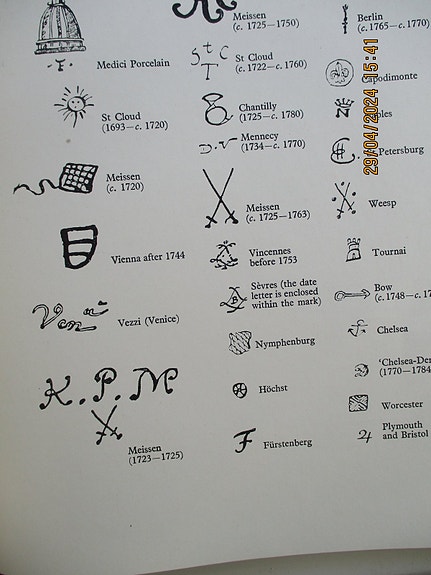 Meissen
(c. 1725—1750)
Berlin
(c. 1765—c. 1770)
·F·
Medici Porcelain
S t C
T
St Cloud
(c. 1722—c. 1760)
Capodimonte
St Cloud
(1693—c. 1720)
Chantilly
(1725—c. 1780)
N
D.V
Mennecy
(1734—c. 1770)
Petersburg
Meissen
(c. 1720)
Meissen
(c. 1725—1763)
Weesp
Vienna after 1744
Vincennes
before 1753
Tournai
Sèvres (the date
letter is enclosed
within the mark)
Bow
(c. 1748—c. 17
Vezzi (Venice)
Nymphenburg
Chelsea
'Chelsea-Der
(1770—1784
K.P.M
Höchst
Worcester
Meissen
(1723—1725)
F
Fürstenberg
Plymouth
and Bristol
29/04/2024 15:41